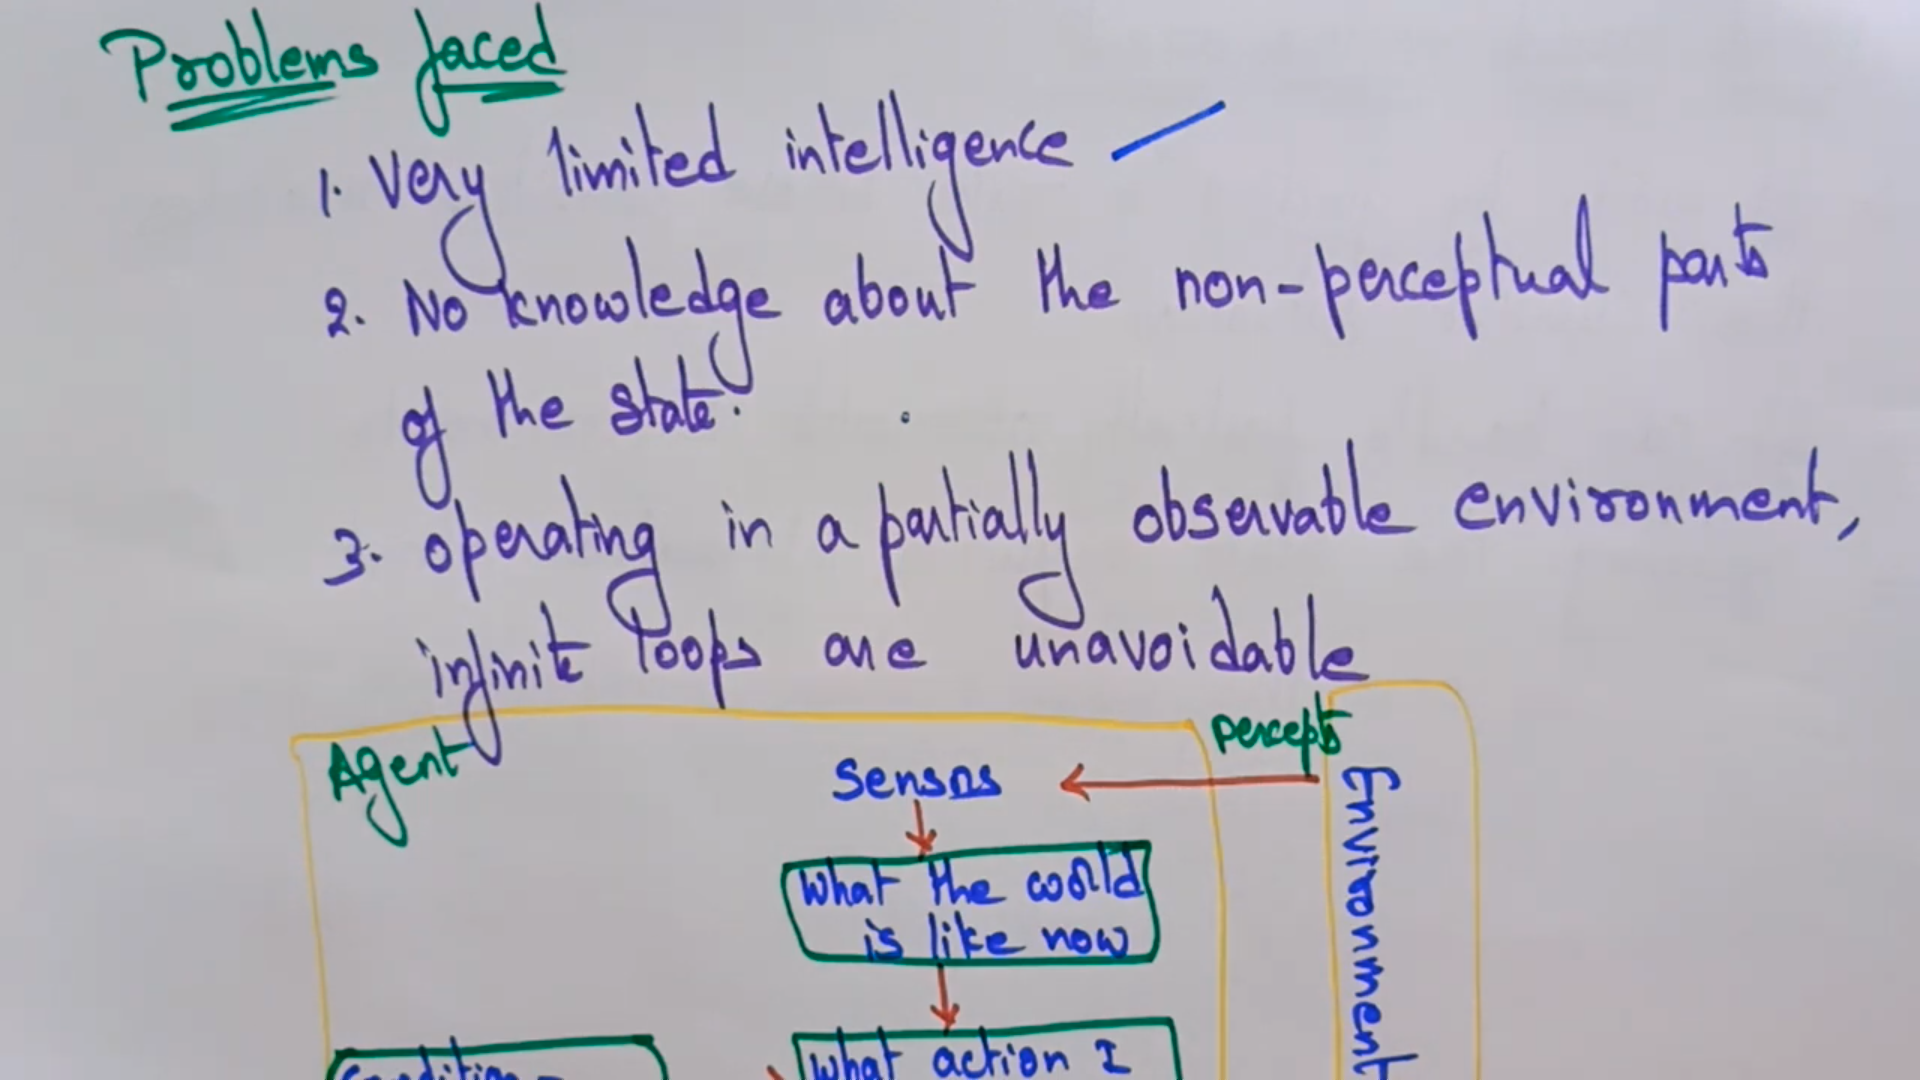 Problems faced
1. Very limited intelligence
2. No knowledge about the non-perceptual parts
of the state.
3. operating in a partially observable environment,
infinite loops are unavoidable
Agent
percepts
Sensors
What the world
is like now
What action I
Condition-
Environment